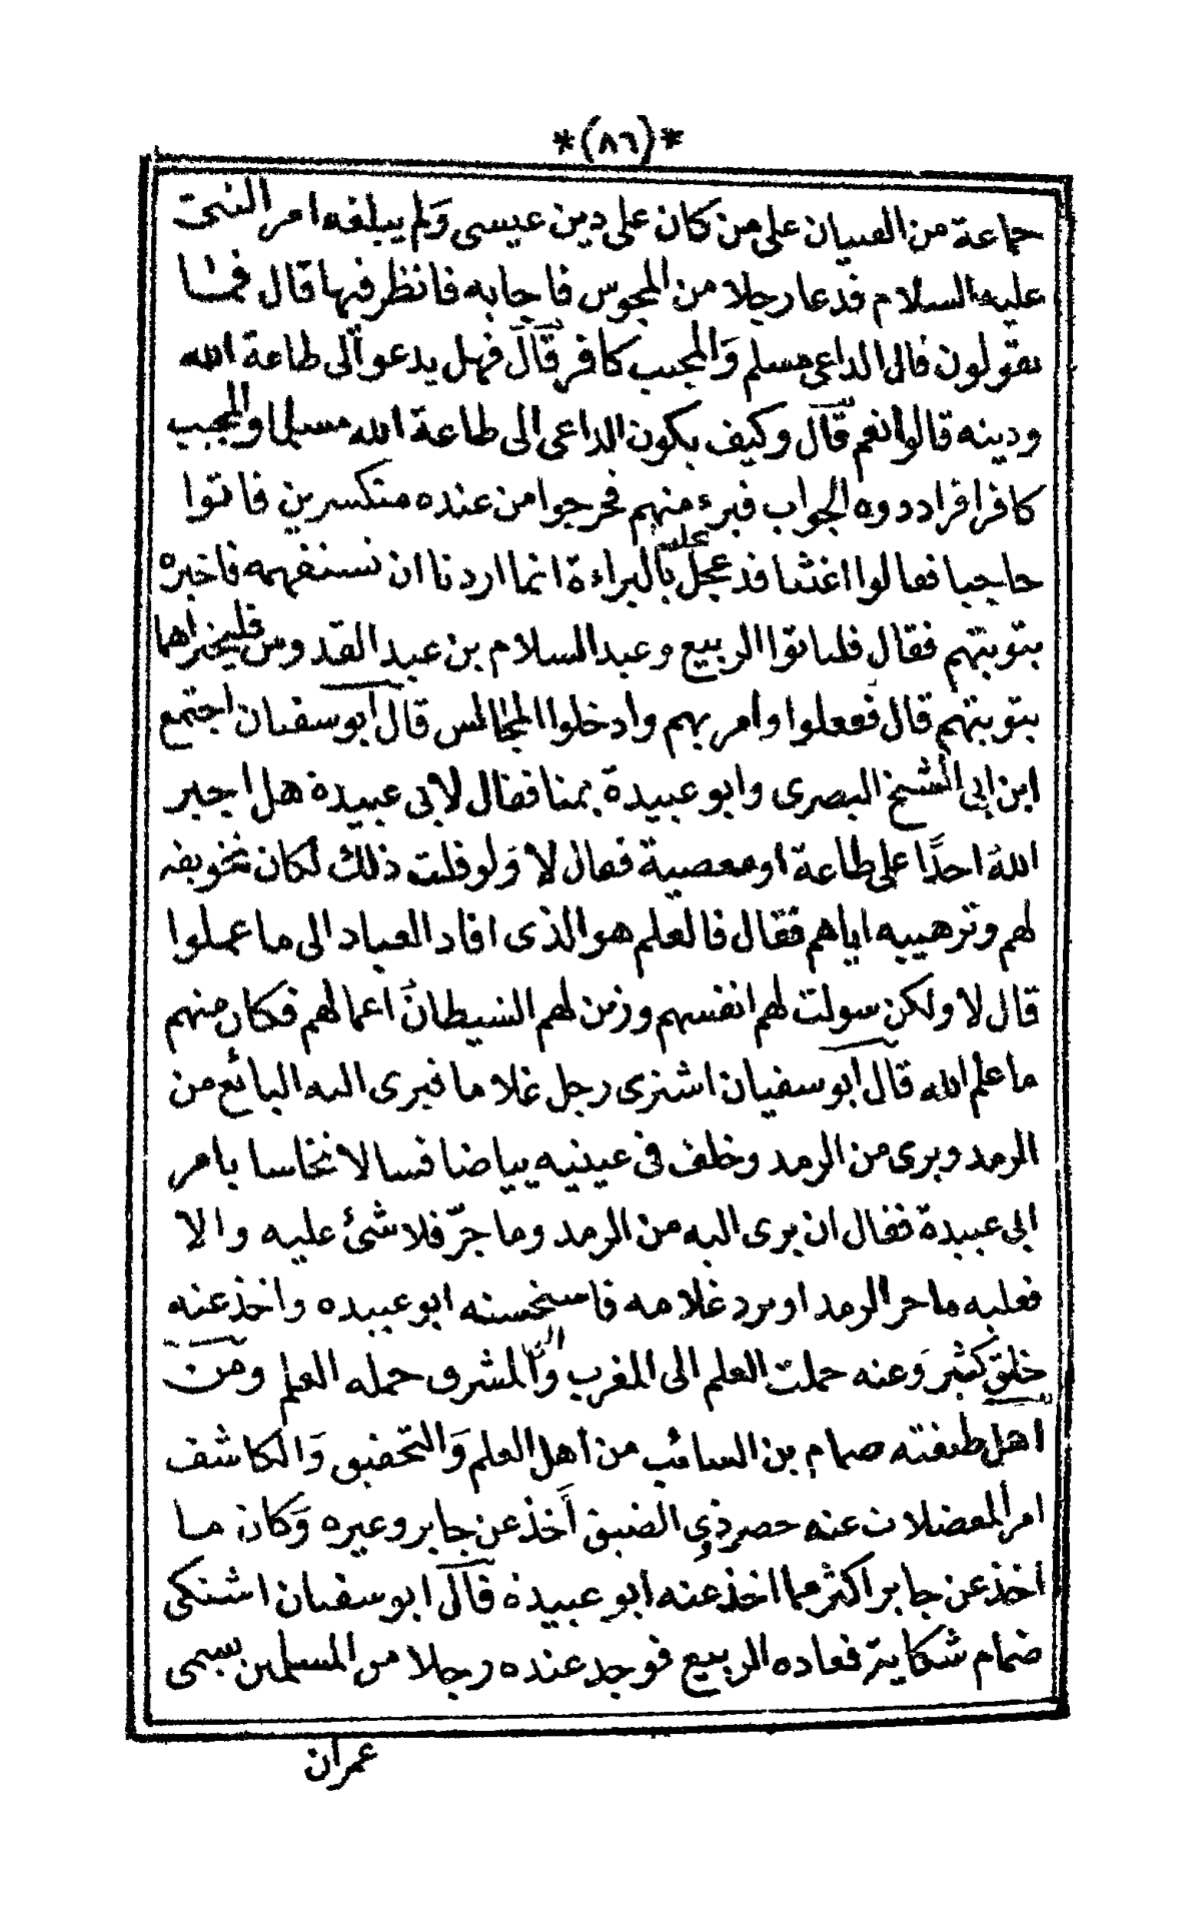 *(٨٦)*
جماعة من الفتيان على من كان على دين عيسى ولم يبلغه امر النبي
عليه السلام فدعا رجلا من المجوس فاجابه فانظر فيها قال فما
تقولون قالوا الداعى مسلم والمجيب كافر قال فهل يدعو الى طاعة الله
ودينه قالوا نعم قال وكيف يكون الداعى الى طاعة الله مسلما والمجيب
كافرا فرادوه الجواب فبرء منهم فخرجوا من عنده منكسرين فاتوا
حاجبا فقالوا اغثنا قد عجل علينا بالبراءة انما اردنا ان نستفهمه فاخبره
بتوبتهم فقال فلياتوا الربيع وعبد السلام بن عبد القدوس فليخبراهما
بتوبتهم قال ففعلوا وامر بهم وادخلوا المجالس قال ابو سفيان اجتمع
ابن ابي الشيخ البصرى وابو عبيدة بمنا فقال لابى عبيدة هل اجبر
الله احدًا على طاعة او معصية فقال لا ولو قلت ذلك لكان تخويفه
لهم وترهيبه اياهم فقال فالعلم هو الذى اقاد العباد الى ما عملوا
قال لا ولكن سولت لهم انفسهم وزين لهم الشيطان اعمالهم فكان منهم
ما علم الله قال ابو سفيان اشترى رجل غلاما فبرى اليه البائع من
الرمد وبرى من الرمد وخلف فى عينيه بياضا فسالا نخاسا بامر
ابى عبيدة فقال ان برى اليه من الرمد وما جرّ فلا شئ عليه والا
فعليه ما جر الرمد او يرد غلامه فاستحسنه ابو عبيده واخذ عنه
خلق كثير وعنه حملت العلم الى المغرب والى المشرق حمله العلم ومن
اهل طبقته ضمام بن السائب من اهل العلم والتحقيق والكاشف
امر المعضلات عنه حصر ذوي الضيق أخذ عن جابر وغيره وكان ما
اخذ عن جابر اكثر مما اخذ عنه ابو عبيدة قال ابو سفيان اشتكى
ضمام شكاية فعاده الربيع فوجد عنده رجلا من المسلمين يسمى
عمران